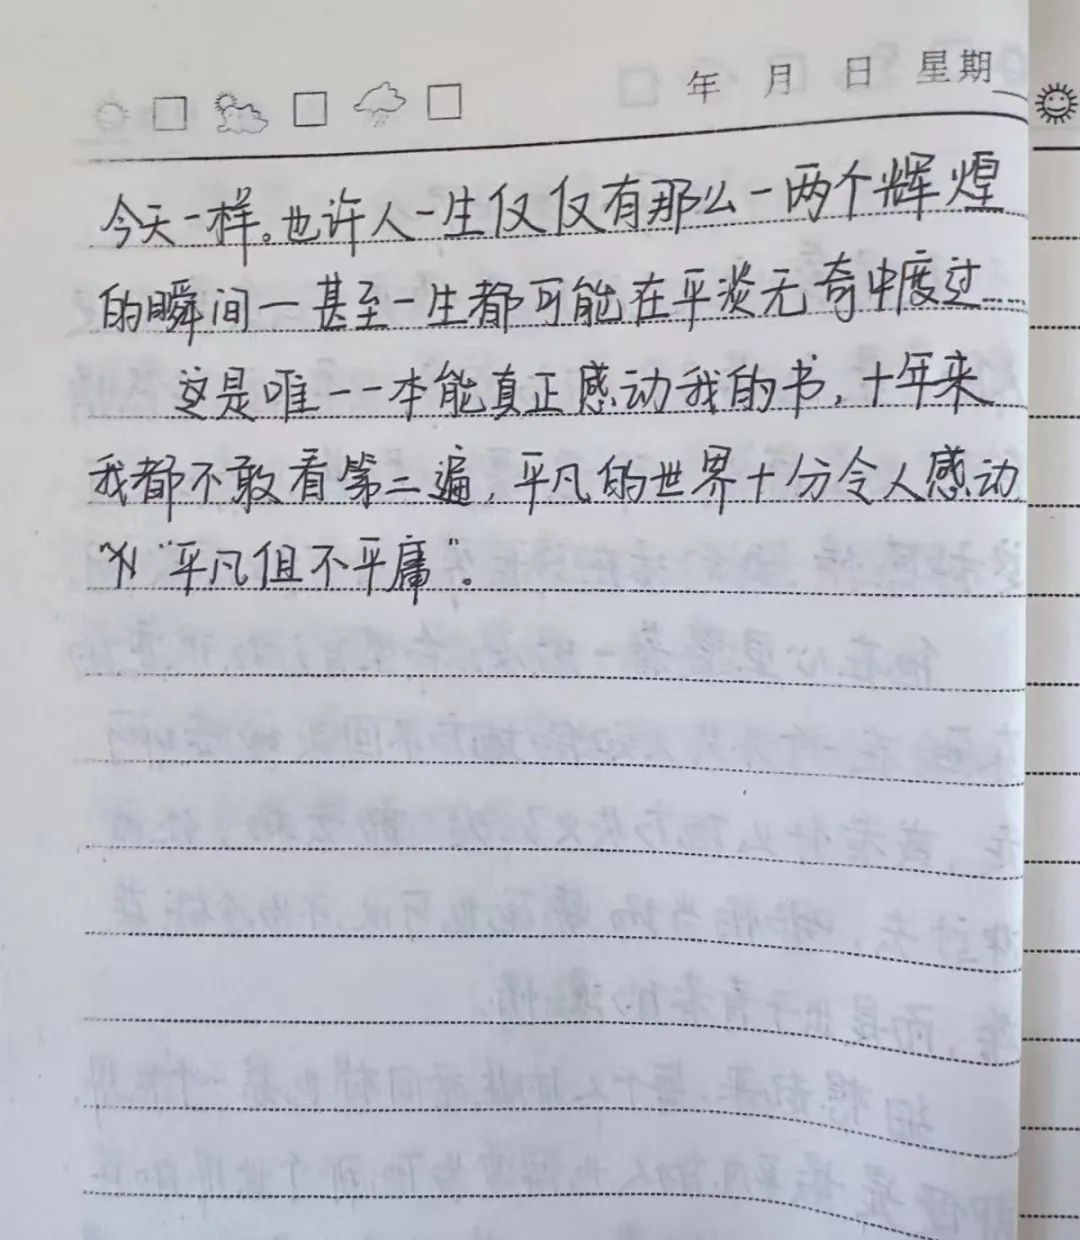 年 月 日 星期
今天一样。也许人一生仅仅有那么一两个辉煌
的瞬间一甚至一生都可能在平淡无奇中度过……
这是唯一一本能真正感动我的书，十年来
我都不敢看第二遍，平凡的世界十分令人感动
"平凡但不平庸"。